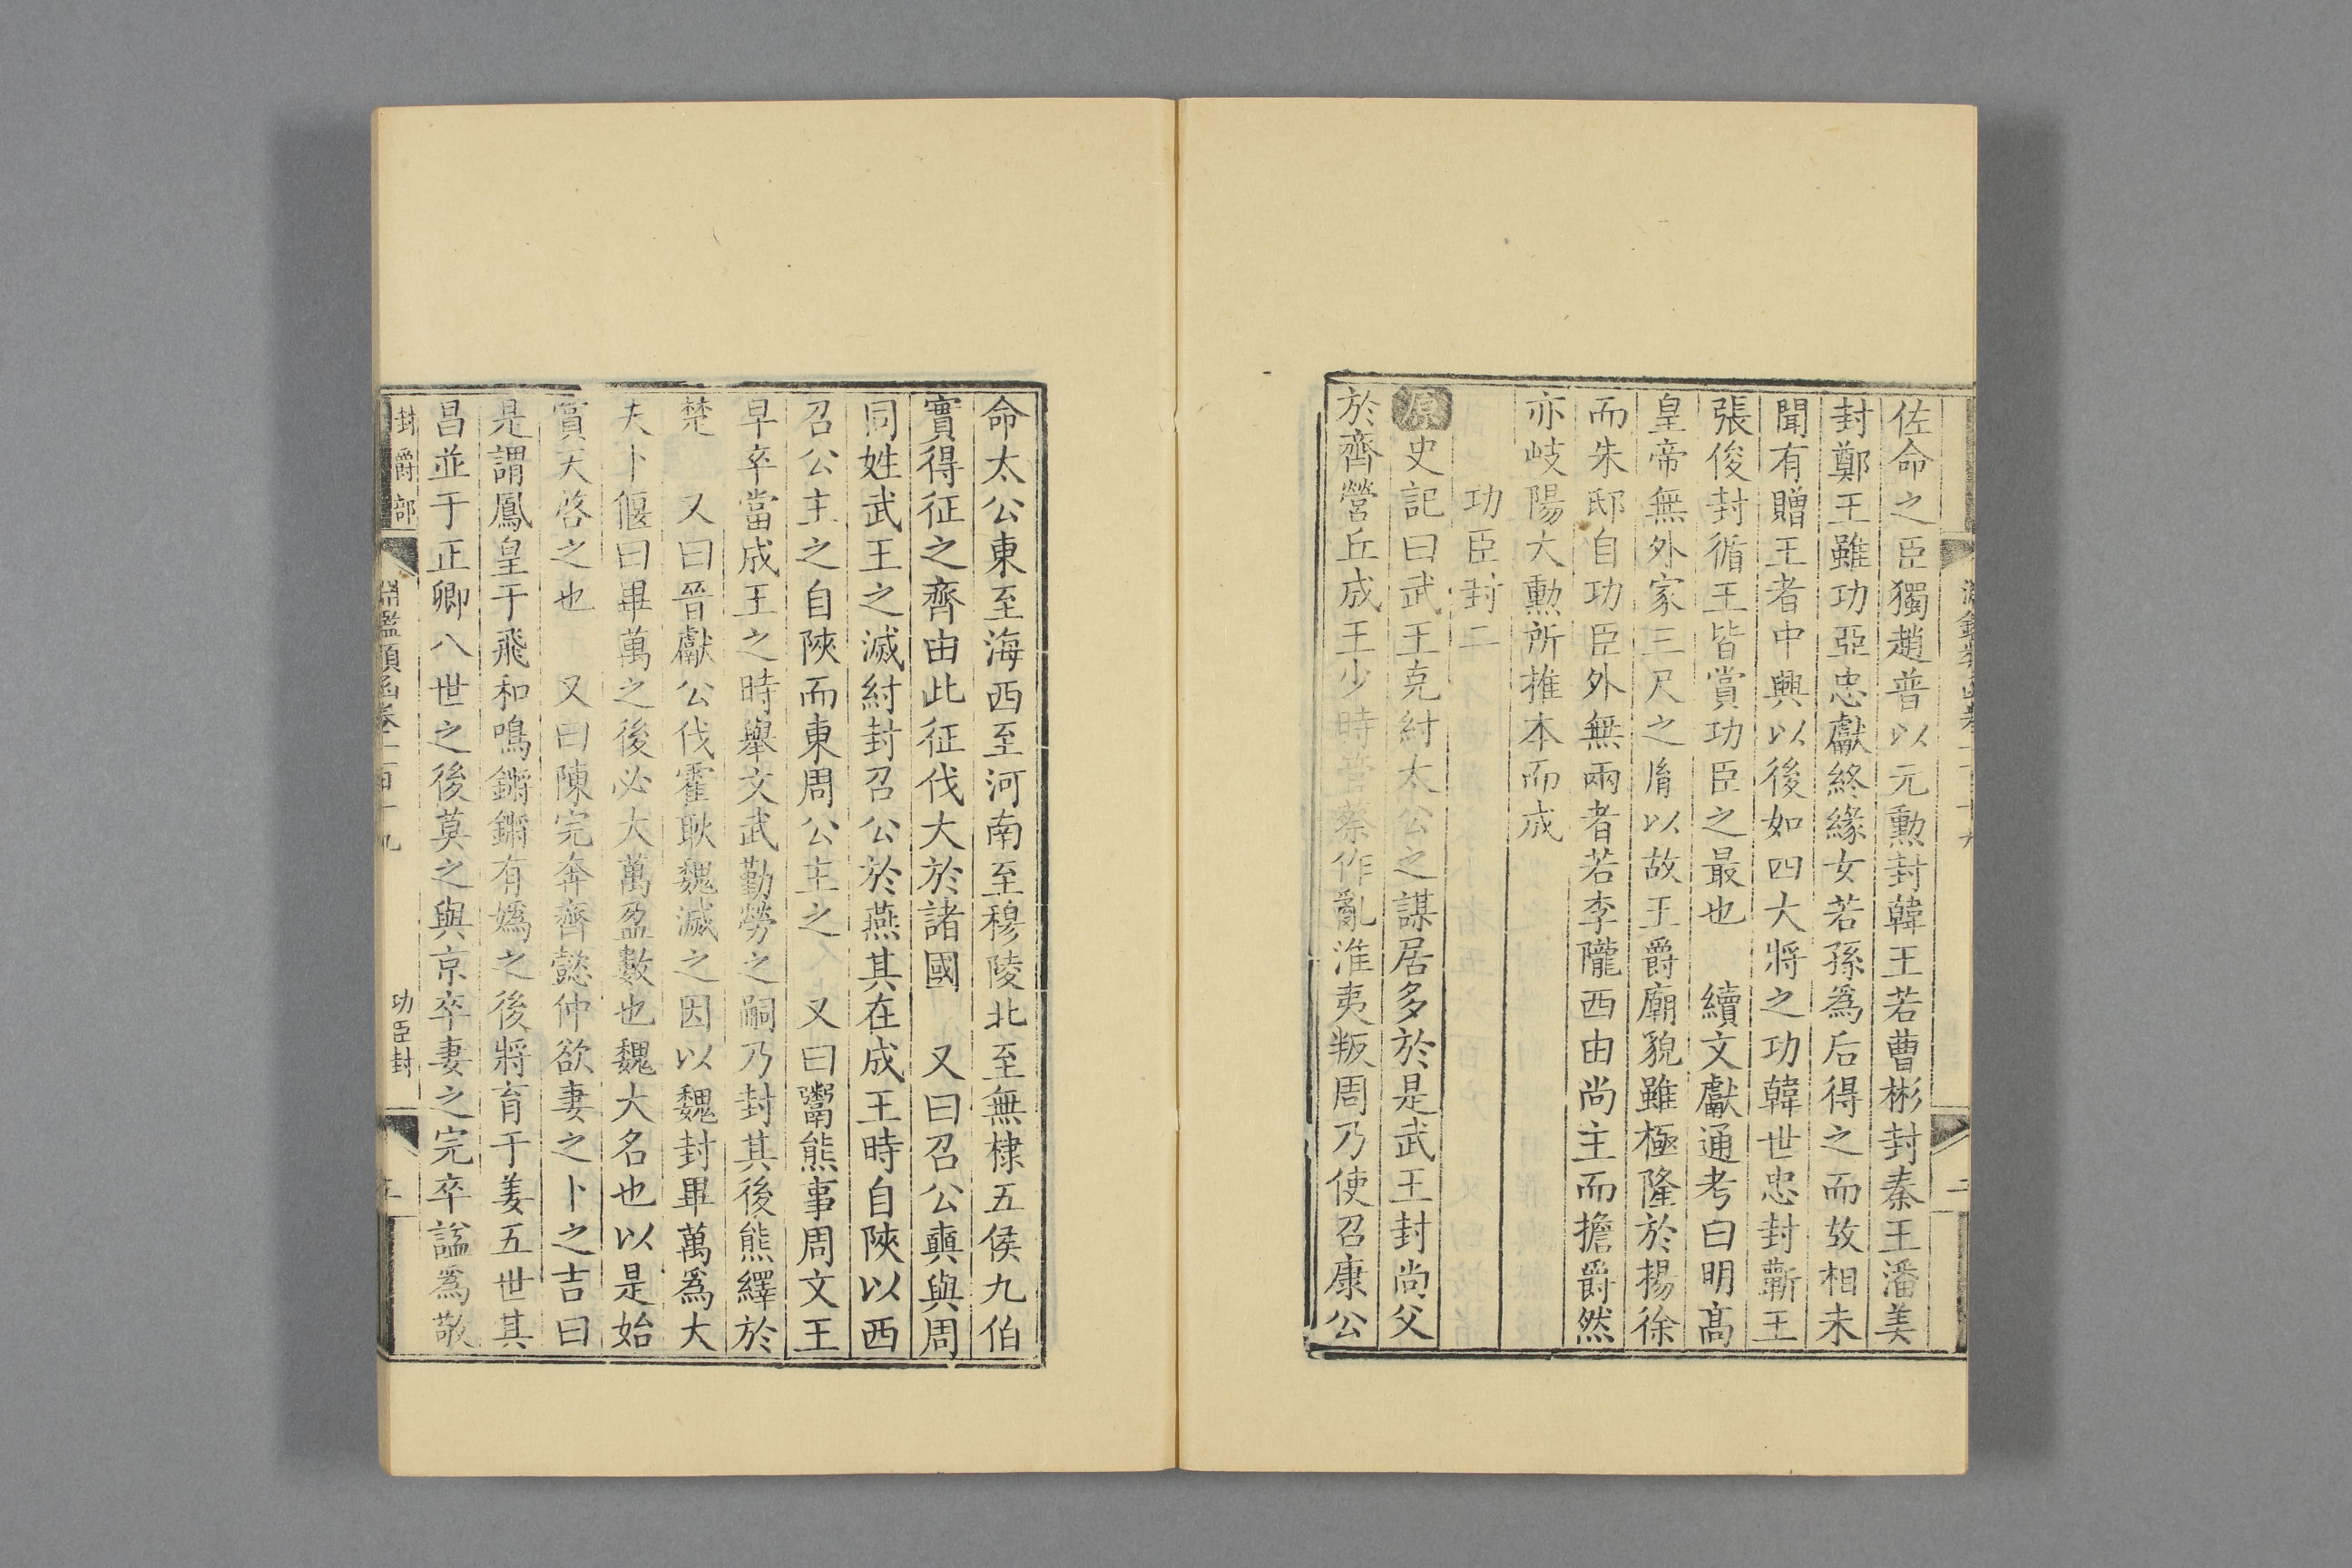 佐命之臣獨趙普以元勳封韓王若曹彬封秦王潘美
封鄭王雖功亞忠獻終緣女若孫爲后得之而攷相未
聞有贈王者中興以後如四大將之功韓世忠封蘄王
張俊封循王皆賞功臣之最也 續文獻通考曰明高
皇帝無外家三尺之胤以故王爵廟貌雖極隆於揚徐
而朱邸自功臣外無兩者若李隴西由尚主而擔爵然
亦岐陽大勳所推本而成
功臣封二
原史記曰武王克紂太公之謀居多於是武王封尚父
於齊營丘成王少時管蔡作亂淮夷叛周乃使召康公
命太公東至海西至河南至穆陵北至無棣五侯九伯
實得征之齊由此征伐大於諸國 又曰召公奭與周
同姓武王之滅紂封召公於燕其在成王時自陝以西
召公主之自陝而東周公主之 又曰鬻熊事周文王
早卒當成王之時舉文武勤勞之嗣乃封其後熊繹於
楚 又曰晉獻公伐霍耿魏滅之因以魏封畢萬爲大
夫卜偃曰畢萬之後必大萬盈數也魏大名也以是始
賞天啓之也 又曰陳完奔齊懿仲欲妻之卜之吉曰
是謂鳳皇于飛和鳴鏘鏘有嬀之後將育于姜五世其
昌並于正卿八世之後莫之與京卒妻之完卒諡爲敬
封爵部
淵鑑類函卷一百十九
功臣封